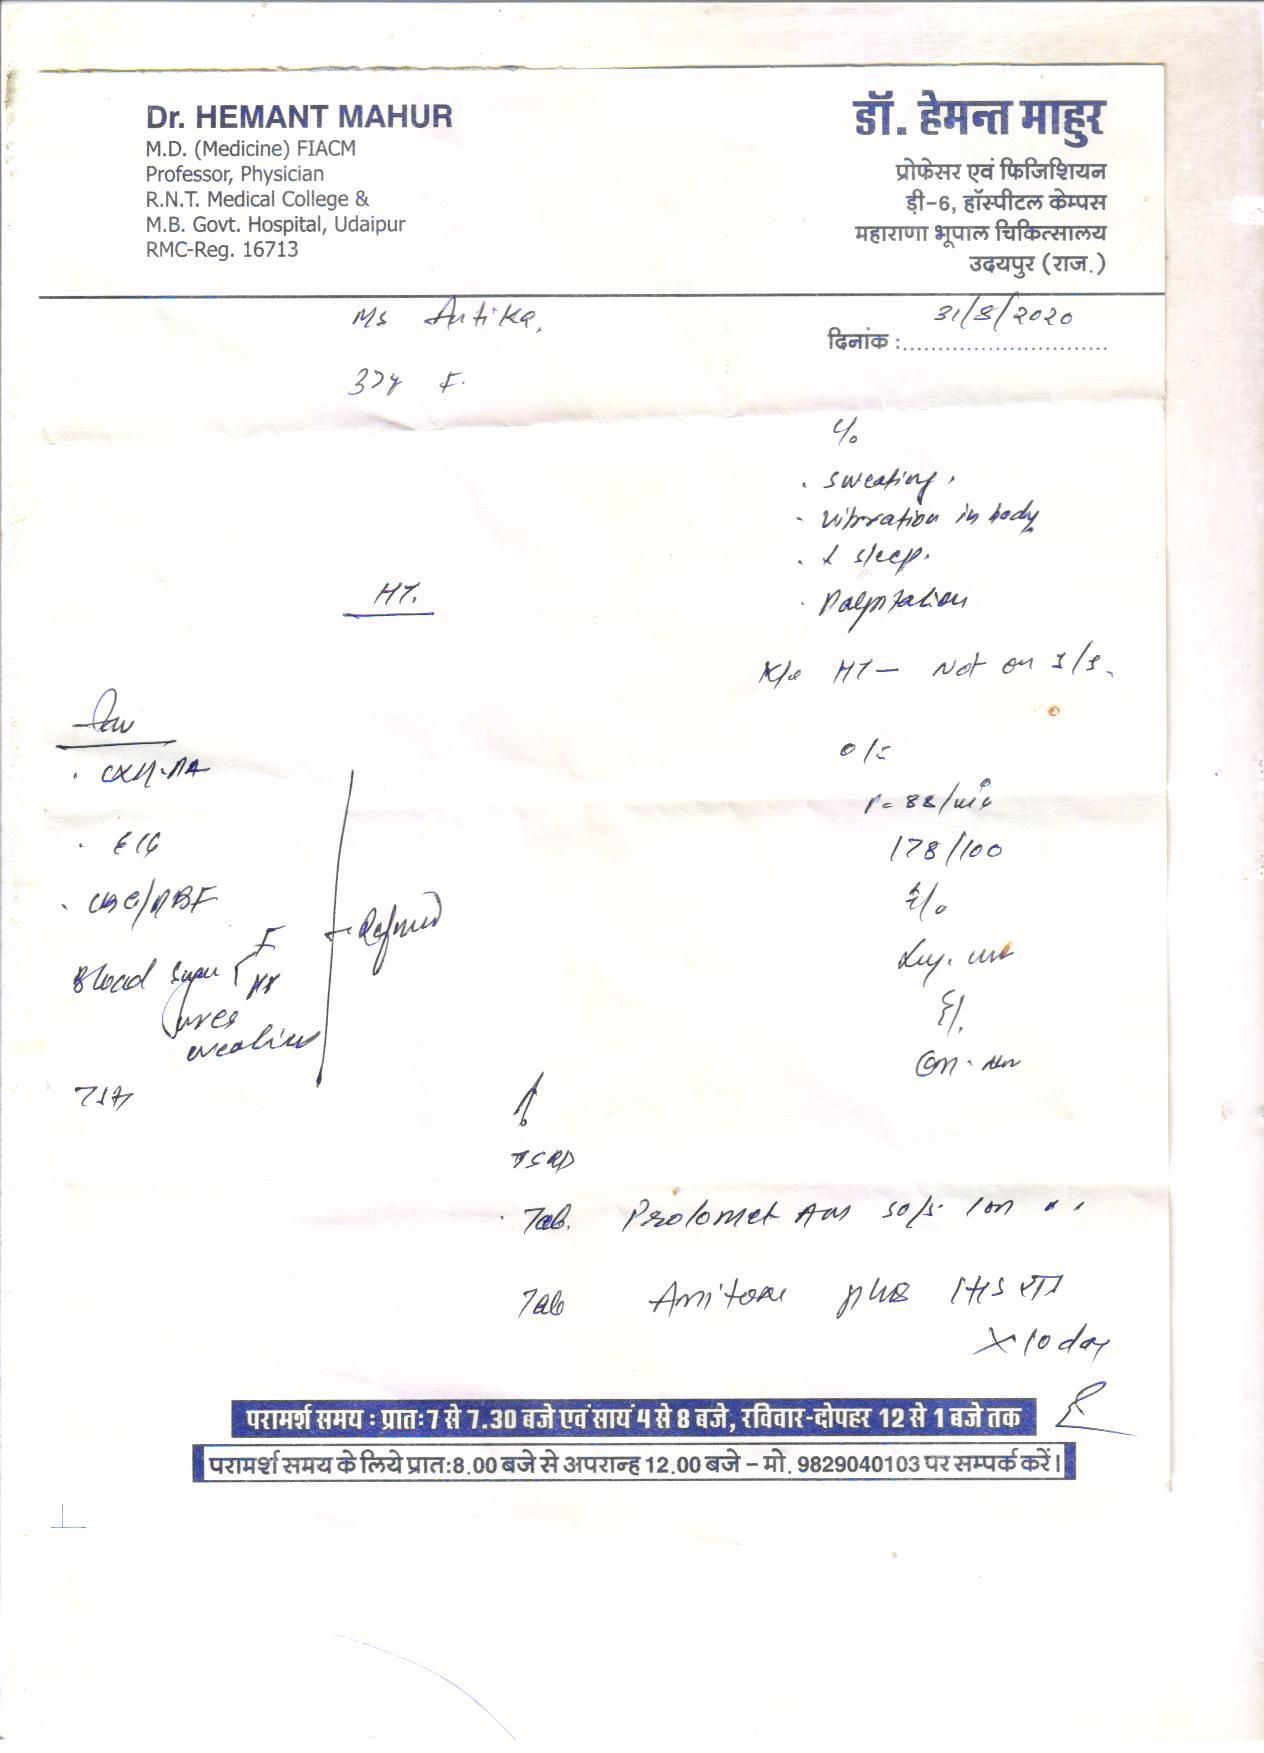 Dr. HEMANT MAHUR
M.D. (Medicine) FIACM
Professor, Physician
R.N.T. Medical College &
M.B. Govt. Hospital, Udaipur
RMC-Reg. 16713
डॉ. हेमन्त माहुर
प्रोफेसर एवं फिजिशियन
ड़ी-6, हॉस्पीटल केम्पस
महाराणा भूपाल चिकित्सालय
उदयपुर (राज.)
Ms
31/8/2020
दिनांक :
37y F.
c/o
. sweating.
- vibration in body
. ↓ sleep.
. Palpitation
HT.
K/c HT - Not on
. CXR-PA
. ECG
. CBC/PBF
Blood Sugar F
PP
urea
creatinine
Refused
TSH
o/e
P= 88/min
178/100
TSRD
. Tab. Prolomet AM 50/5 1
Tab plus 1 HS
x 10 day
परामर्श समय : प्रातः 7 से 7.30 बजे एवं सायं 4 से 8 बजे, रविवार-दोपहर 12 से 1 बजे तक
परामर्श समय के लिये प्रात:8.00 बजे से अपरान्ह 12.00 बजे – मो. 9829040103 पर सम्पर्क करें।